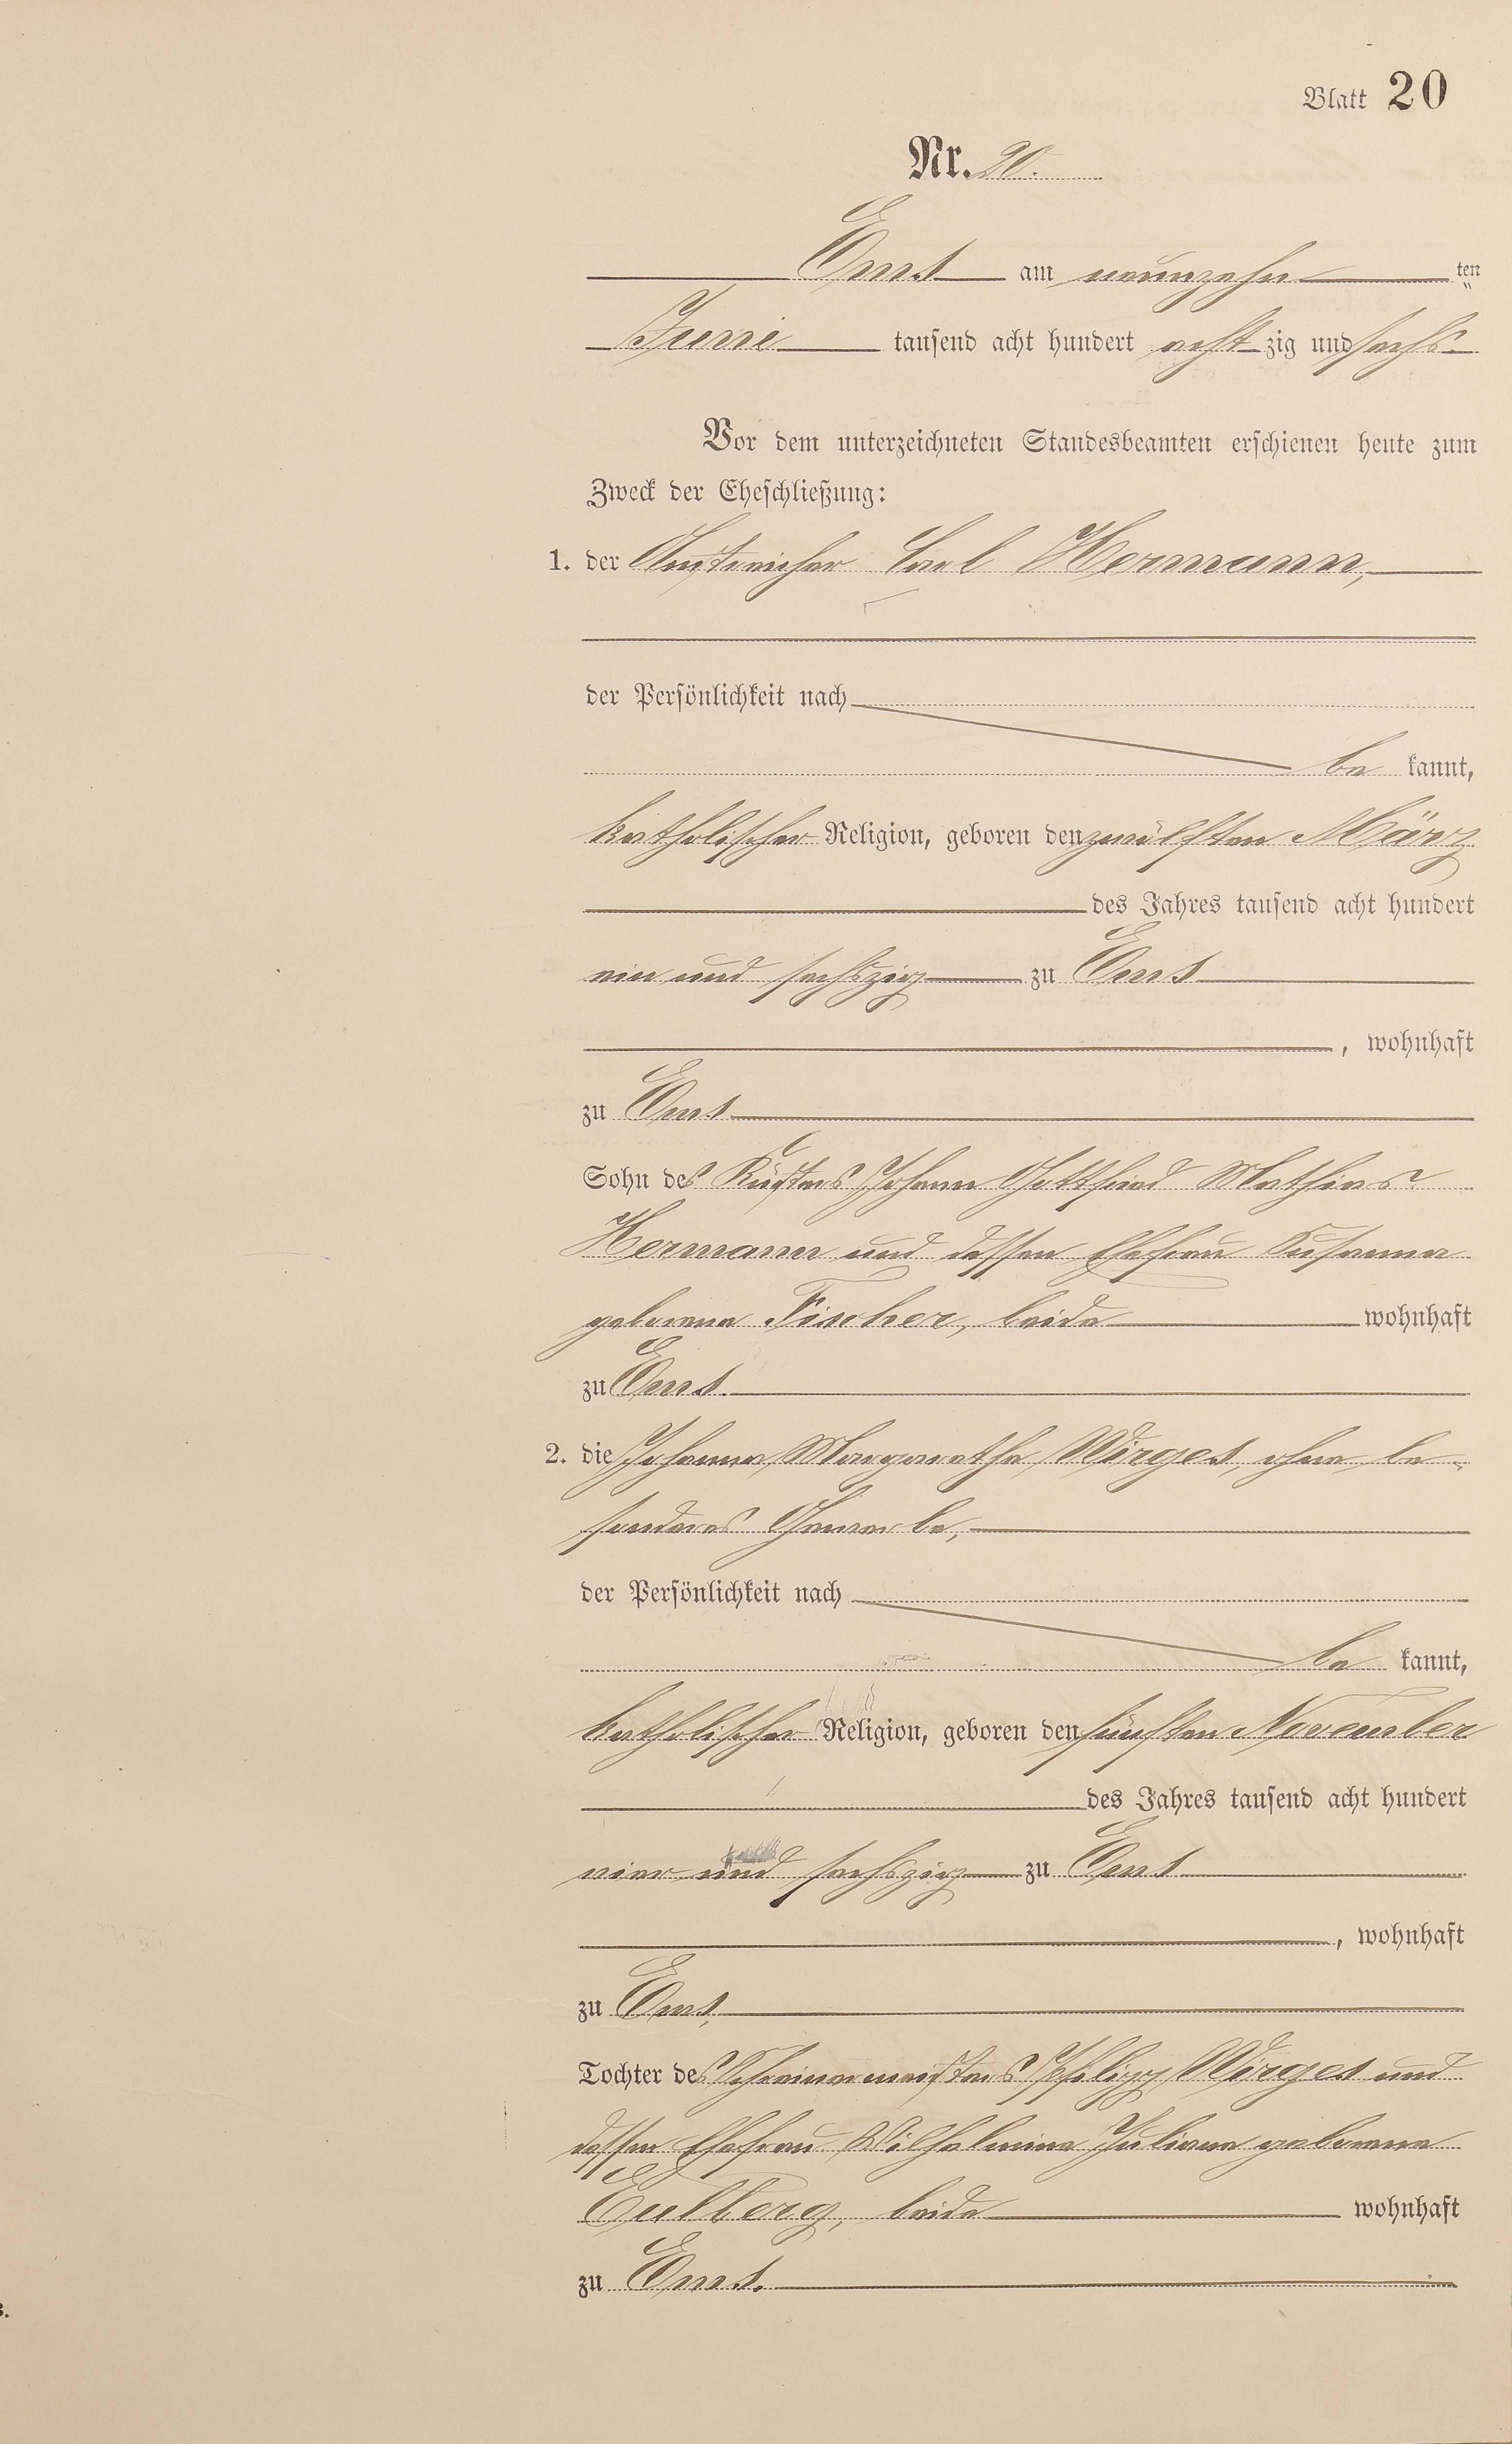 Blatt 20
Nr. 20.
Ems am neunzehn ten
Juni tausend acht hundert acht zig und sechs.
Vor dem unterzeichneten Standesbeamten erschienen heute zum
Zweck der Eheschließung:
1. der Carl Hermann,
der Persönlichkeit nach
be kannt,
katholischer Religion, geboren den zwölften März
des Jahres tausend acht hundert
ein und sechszig zu Ems
, wohnhaft
zu Ems
Sohn des Küsters Johann Gottfried Mathias
Hermann und dessen Ehefrau Susanna
geborene Fischer, beide wohnhaft
zu Ems.
2. die Johanna Margarethe Wirges, ohne be-
sonderes Gewerbe,
der Persönlichkeit nach
be kannt,
katholischer Religion, geboren den fünften November
des Jahres tausend acht hundert
vier und sechszig zu Ems
, wohnhaft
zu Ems,
Tochter des Schreinermeisters Philipp Wirges und
dessen Ehefrau Wilhelmine Juliane geborene
Eulberg, beide wohnhaft
zu Ems.